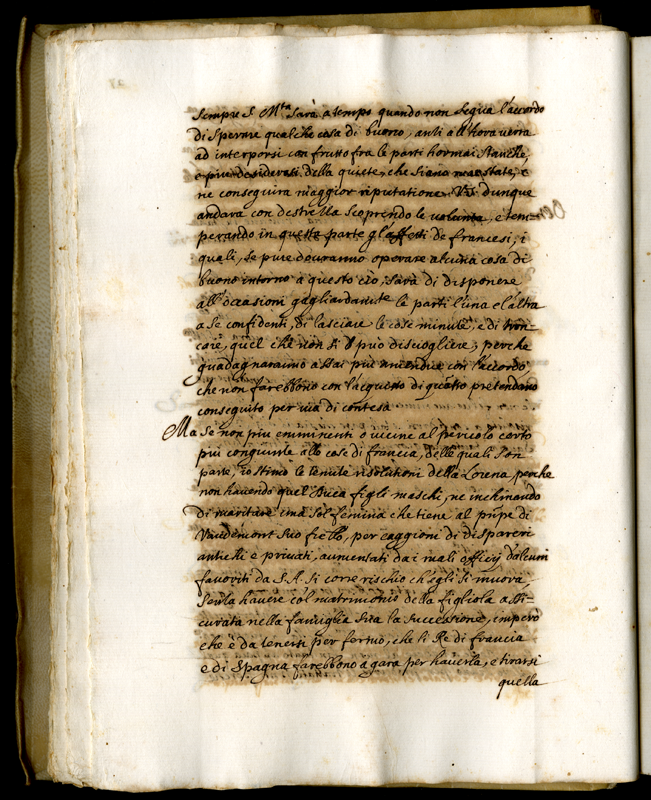 sempre S. M.ta sarà a tempo quando non segua l'accordo
di sperare qualche cosa di buono, anti all'hora verra
ad interporsi con frutto fra le parti hormai stanche,
e piu desiderosi della quiete, che siano mai state, e
ne conseguira maggior riputatione. V.S. dunque
andara con destrezza scoprendo le volunta, e tem-
perando in questa parte gl'affetti de francesi, i
quali, se pure douranno operare alcuna cosa di
buono intorno a questo ciò, sarà di disponere
all'occasioni gagliardamente le parti l'una e l'altra
a se confidenti, di lasciare le cose minute, e di tron-
care, quel che non si può disciogliere; perche
guadagnaranno assai più amendue con l'accordo,
che non farebbono con l'acquisto di quanto pretendano
conseguito per via di contesa.
Ma se non piu emminenti o vicine al pericolo certo
più congiunte alle cose di francia, delle quali son
parte, io stimo le tenute risolutioni della Lorena, perche
non hauendo quel Duca figli maschi, ne inchinando
di maritare una sol femina che tiene al prñpe di
Vaudemont suo fr̃ello, per caggione di dispareri
antichi e priuati, aumentati da i mali officij d'alcuni
fauoriti da S.A. si corre rischio ch'egli si muova,
senza hauere col matrimonio della figliola assi-
curata nella famiglia sua la successione, imperò
che è da tenersi per fermo, che li Rè di francia
e di Spagna farebbono a gara per hauerla, e tirarsi
quella